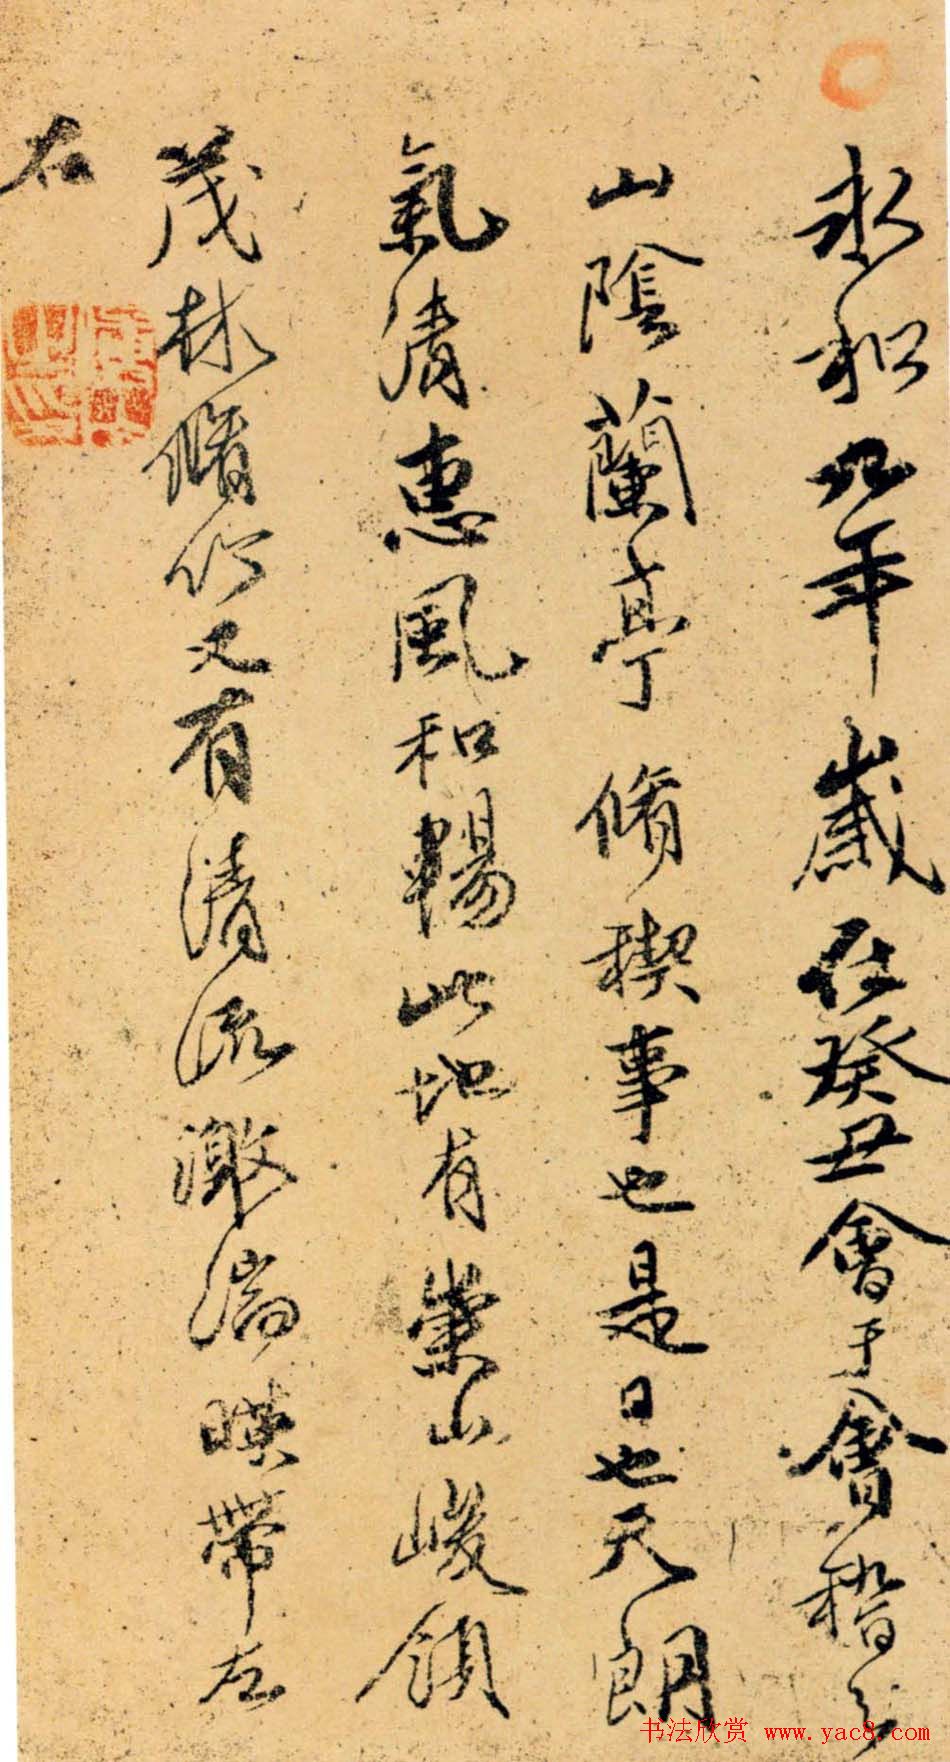 永和九年歲在癸丑會于會稽之
山陰蘭亭脩稧事也是日也天朗
氣清惠風和暢此地有崇山峻領
茂林脩竹又有清流激湍暎帶左
右
书法欣赏 www.yac8.com